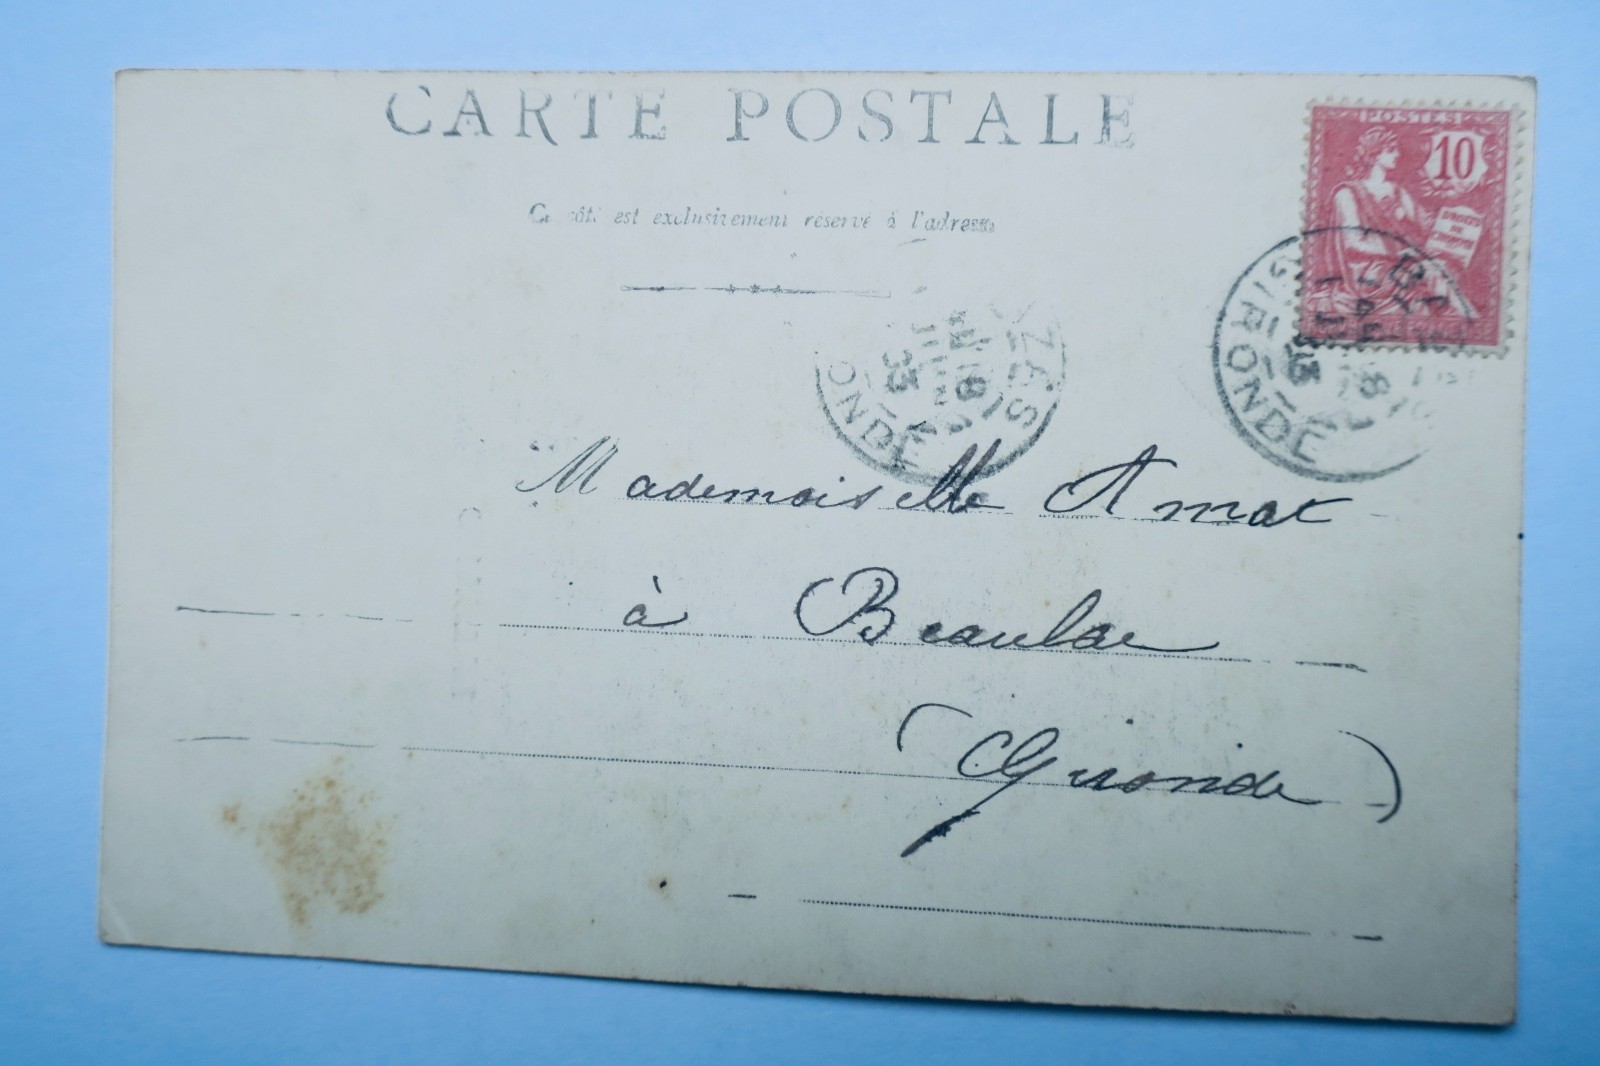 CARTE POSTALE
Ce côté est exclusivement réservé à l'adresse
POSTES
10
DROITS
DE
L'HOMME
GIRONDE
ZAIS
ONDE
03
Mademoiselle Amat
à Beaulac
(Gironde)